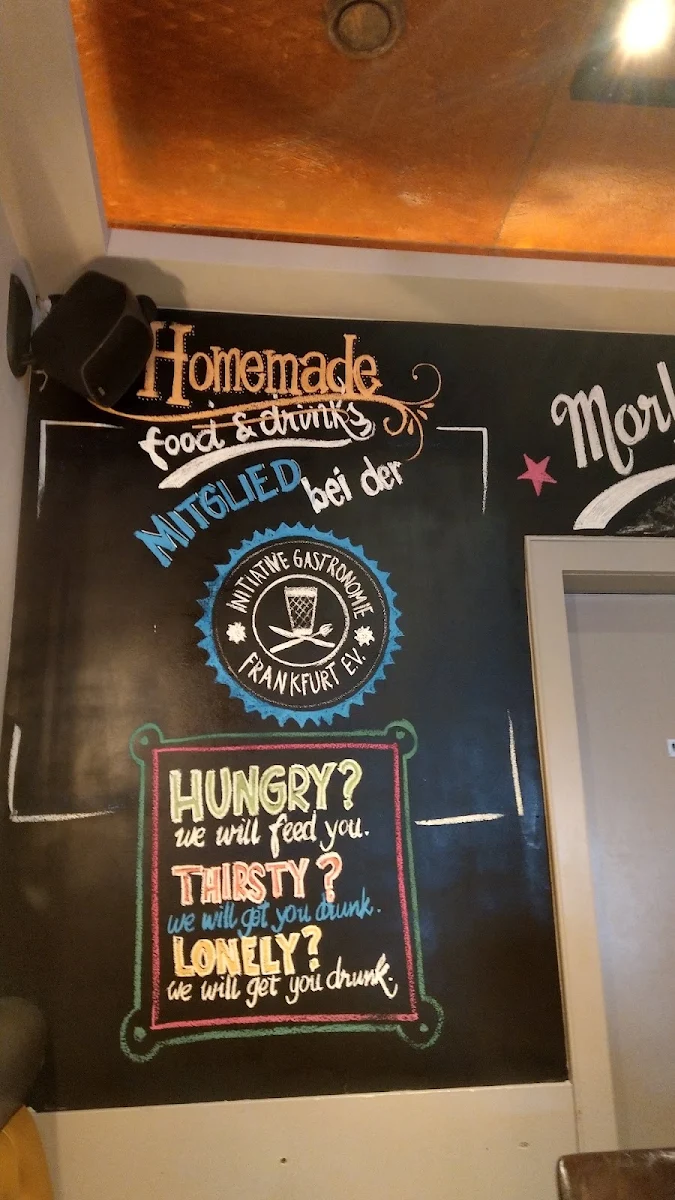 Homemade
food & drinks
MITGLIED bei der
INITIATIVE GASTRONOMIE
FRANKFURT E.V.
HUNGRY?
we will feed you.
THIRSTY?
we will get you drunk.
LONELY?
we will get you drunk.